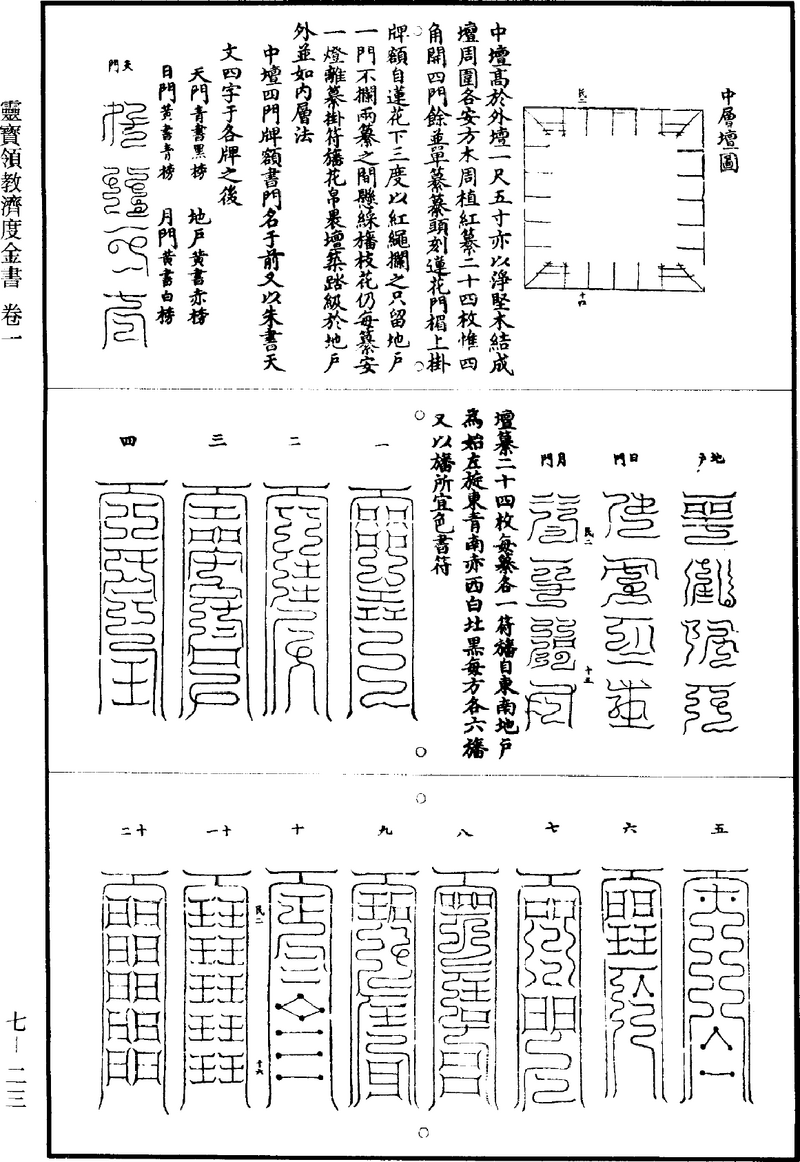 中層壇圖
民二
十四
中壇高於外壇一尺五寸亦以淨堅木結成
壇周圍各安方木周植紅纂二十四枚惟四
角開四門餘並單纂纂頭刻蓮花門楣上掛
牌額自蓮花下三度以紅繩攔之只留地戶
一門不攔兩纂之間懸綵旛枝花仍每纂安
一燈離纂掛符旛花帛裹壇築踏級於地戶
外並如內層法
中壇四門牌額書門名于前又以朱書天
文四字于各牌之後
天門青書黑榜 地戶黃書赤榜
日門黃書青榜 月門黃書白榜
天門
地戶
日門
月門
民二
十五
壇纂二十四枚每纂各一符旛自東南地戶
為始左旋東青南赤西白北黑每方各六旛
又以旛所宜色書符
一
二
三
四
五
六
七
八
九
十
民二
十六
十一
十二
靈寶領教濟度金書 卷一
七—二三